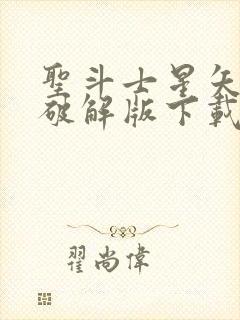 聖斗士星矢
破解版下載
翟尚偉